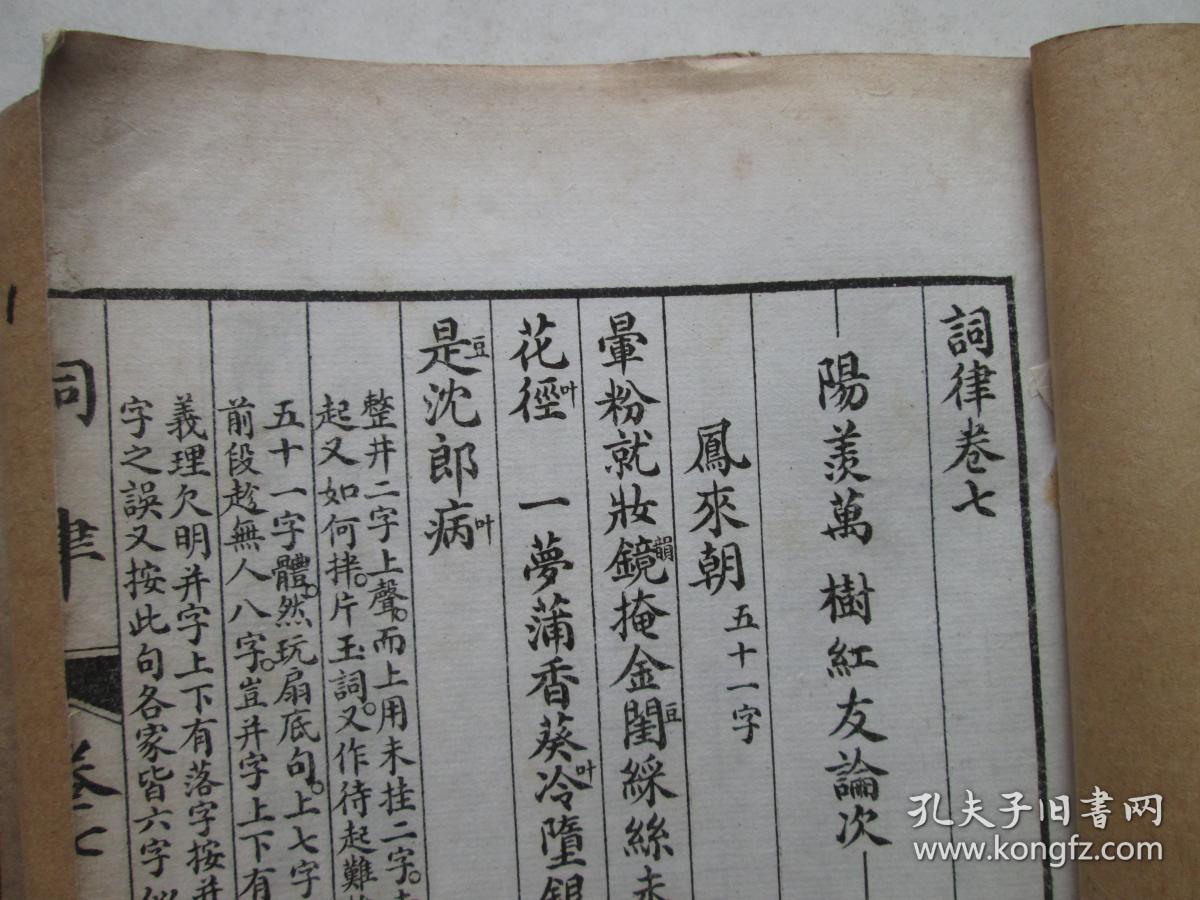 詞律卷七
陽羨萬 樹紅友論次
鳳來朝 五十一字
暈粉就妝鏡韻掩金閨豆綵絲未
花徑叶 一夢蒲香葵冷叶墮銀
是豆沈郎病叶
整井二字上聲而上用未挂二字去
起又如何拌片玉詞又作待起難
五十一字體然玩扇底句上七字
前段趁無人八字豈并字上下有
義理欠明并字上下有落字按并
字之誤又按此句各家皆六字
詞律
卷七
孔夫子旧書网
www.kongfz.com